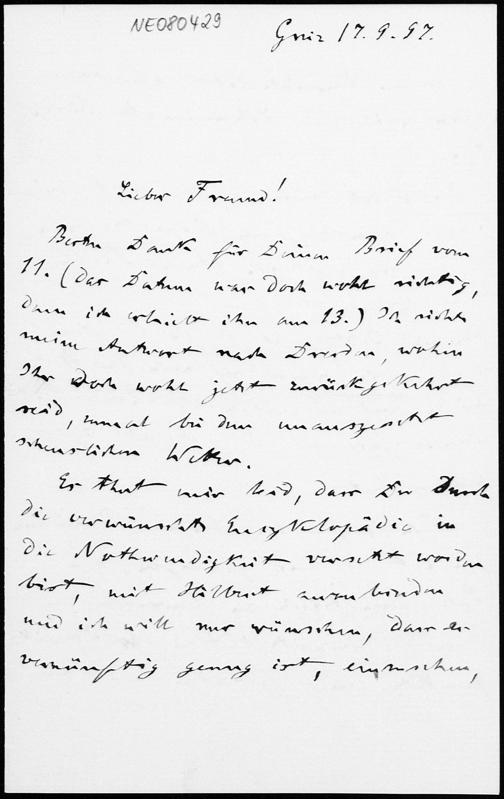 NE080429
Greiz 17.9.97.
Lieber Freund!
Besten Dank für Deinen Brief vom
11. (das Datum war doch wohl richtig,
denn ich erhielt ihn am 13.) Ich richte
meine Antwort nach Dresden, wohin
Ihr doch wohl jetzt zurückgekehrt
seid, zumal bei dem unausgesetzt
scheusslichen Wetter.
Es that mir leid, dass Du durch
die verwünschte Encyklopädie in
die Nothwendigkeit versetzt worden
bist, mit Hilbert anzubinden
und ich will nur wünschen, dass er
vernünftig genug ist, einzusehen,